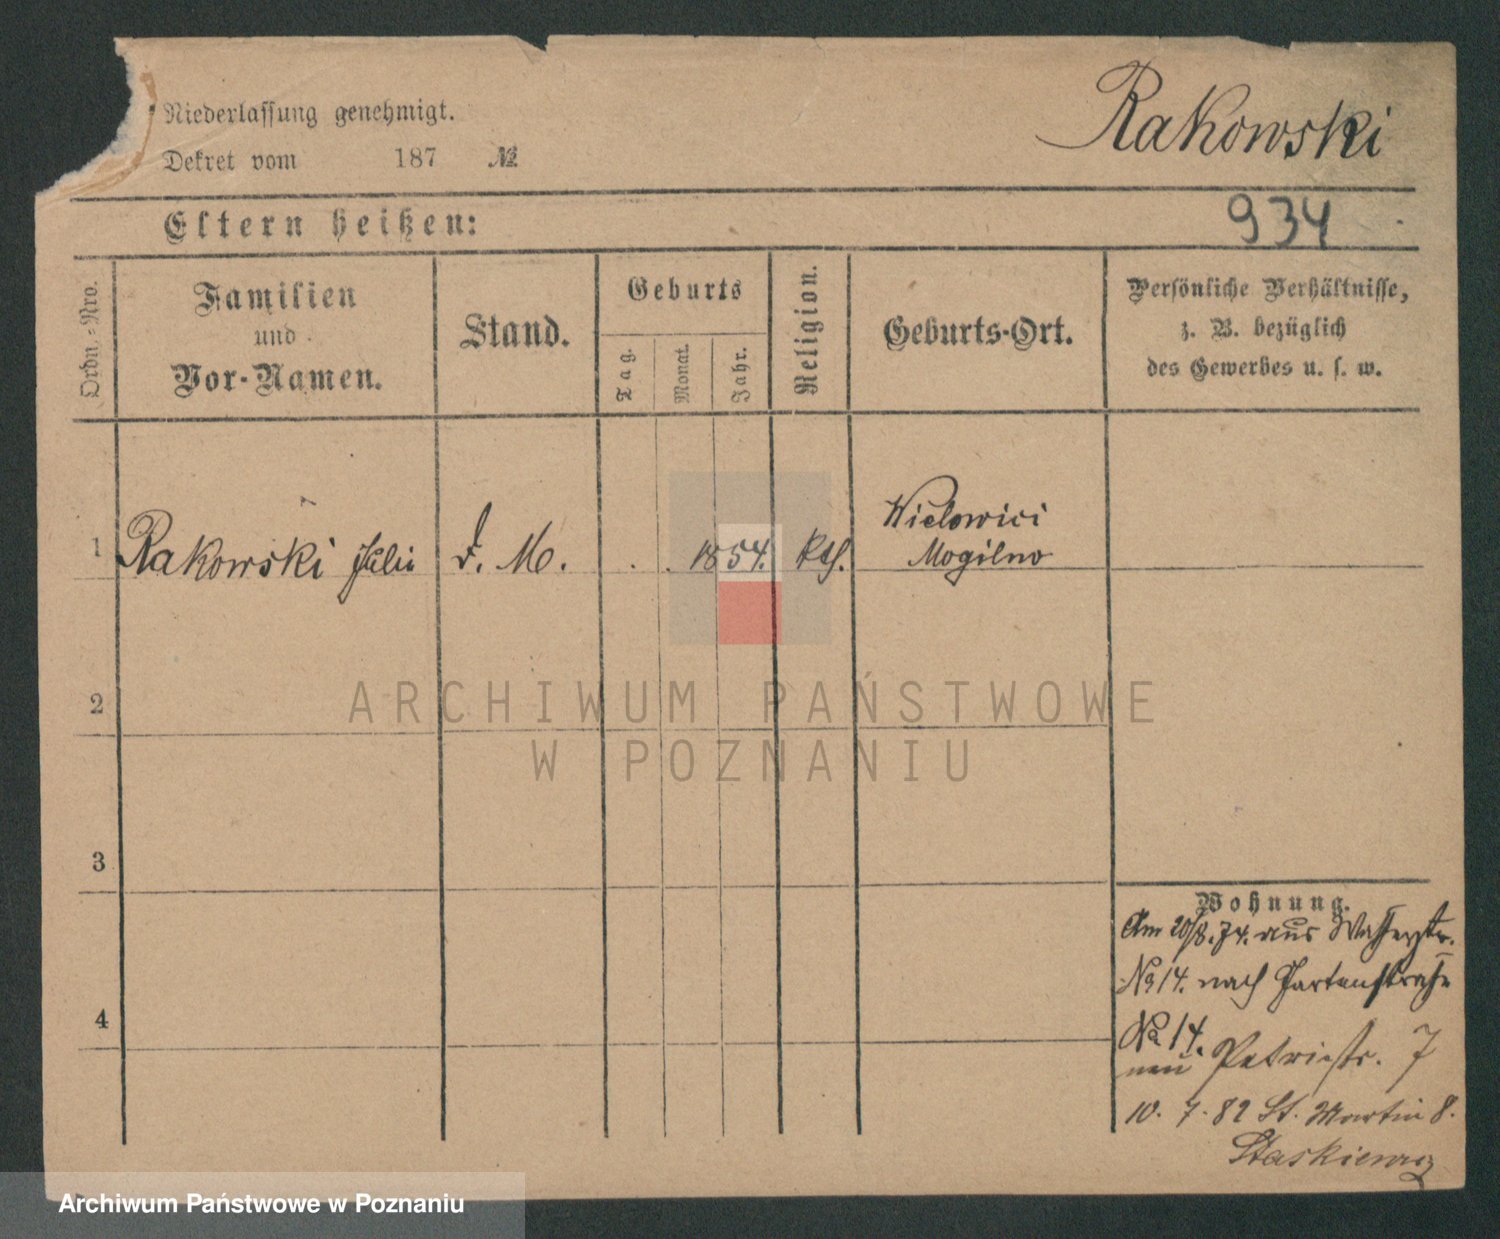 Rakowski
Niederlassung genehmigt.
Dekret vom 187 №
Eltern heißen:
934
Ordn.-Nro.
Familien
und
Vor-Namen.
Stand.
Geburts
Tag.
Monat.
Jahr.
Religion.
Geburts-Ort.
Persönliche Verhältnisse,
z. B. bezüglich
des Gewerbes u. s. w.
1 Rakowski M. 1854. kth.
Mogilno
2
3
4
Wohnung.
Am 20/8.74. aus Wasserstr.
No 14. nach Gartenstraße
No 14.
neu Petristr. 7
10. 7. 82 St. Martin 8.
Staskiewicz
ARCHIWUM PAŃSTWOWE
W POZNANIU
Archiwum Państwowe w Poznaniu